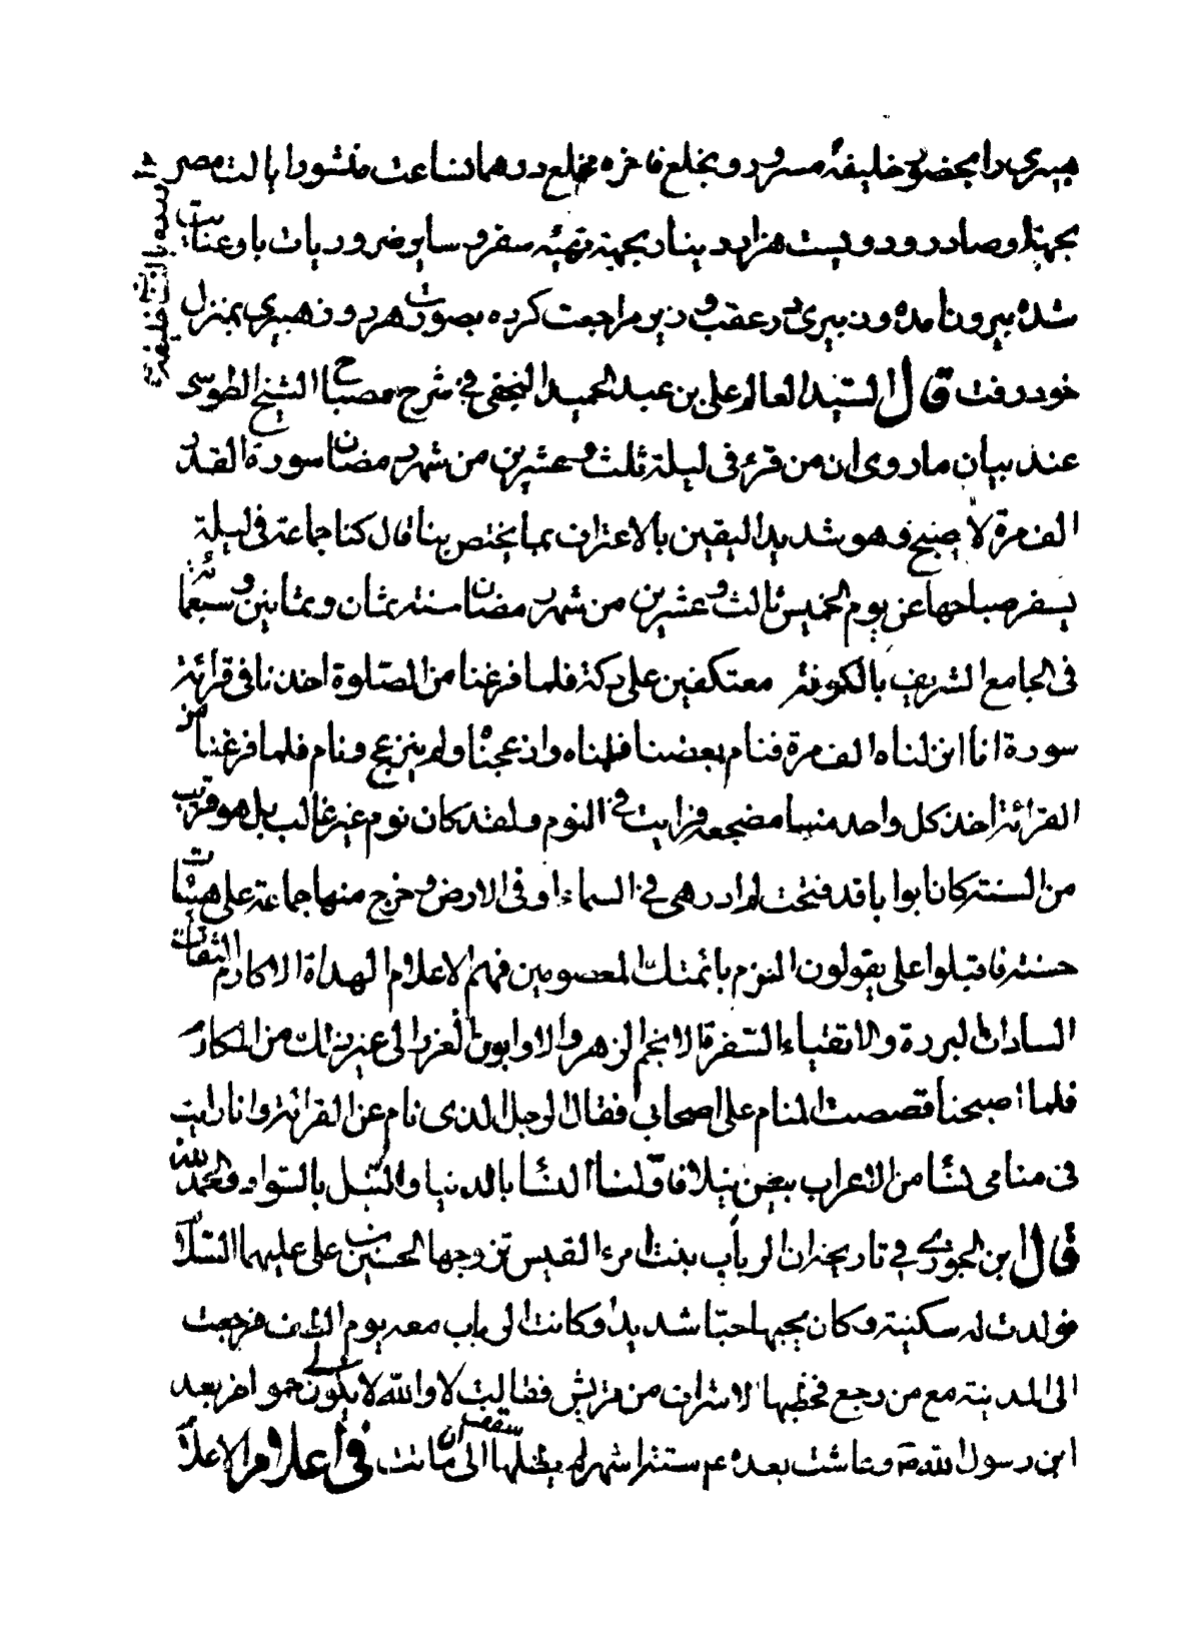 هبیری را بحضور خلیفه مسرور و بخلع فاخره مخلع در همان ساعت منشور ایالت مصر
بجهة او صادر و دویست هزار دینار بجهة تهیئه سفر و سایر ضروریات با و عنایت
شده بیرون آمده وزبیری در عقب وزیر مراجعت کرده بصورت هر دو زهبیری بمنزل
خود رفت قال السید العالم علی بن عبد الحمید النجفی فی شرح مصباح الشیخ الطوسی
عند بیان ما روی ان من قرء فی لیلة ثلث و عشرین من شهر رمضان سورة القدر
الف مرة لاصبح وهو شدید الیقین بالاعتراف بما یختص بنا قال کنا جماعة فی لیلة
یسفر صباحها عن یوم الخمیس ثالث وعشرین من شهر رمضان سنة ثمان وثمانین وسبعمائة
فی الجامع الشریف بالکوفة معتکفین علی دکة فلما فرغنا من الصلوة اخذنا فی قرائة
سورة انا انزلناه الف مرة فنام بعضنا فلمناه وازعجناه ولم ینزعج ونام فلما فرغنا من
القرائة اخذ کل واحد منا مضجعه فرایت فی النوم ولقد کان نوم غیر غالب بل هو قریب
من السنة کان ابوابا قد فتحت لم ادر هی فی السماء او فی الارض وخرج منها جماعة علی هیئات
حسنة فاقبلوا علی یقولون التزم بائمتک المعصومین فهم الاعلام الهداة الاکارم الثقات
السادات البررة والاتقیاء السفرة الانجم الزهر والاوابون الغر الی غیر ذلک من المکارم
فلما اصبحنا قصصت المنام علی اصحابی فقال الرجل الذی نام عن القرائة وانا رایت
فی منامی نشأ من الاعراب بیض نبلا فاولنا النشأ بالدنیا والنبل بالتواد والحمد لله
قال ابن الجوزی فی تاریخه ان الرباب بنت امرء القیس تزوجها الحسین بن علی علیهما السلام
فولدت له سکینة وکان یحبها حبا شدیدا وکانت الرباب معه یوم الطف فرجعت
الی المدینة مع من رجع فخطبها الاشراف من قریش فقالت لا والله لا یکون لی حمو اخر بعد
ابن رسول الله ص وعاشت بعده ع سنة اشهر لم یظلها سقف الی ان ماتت فی اعلام الاعلام